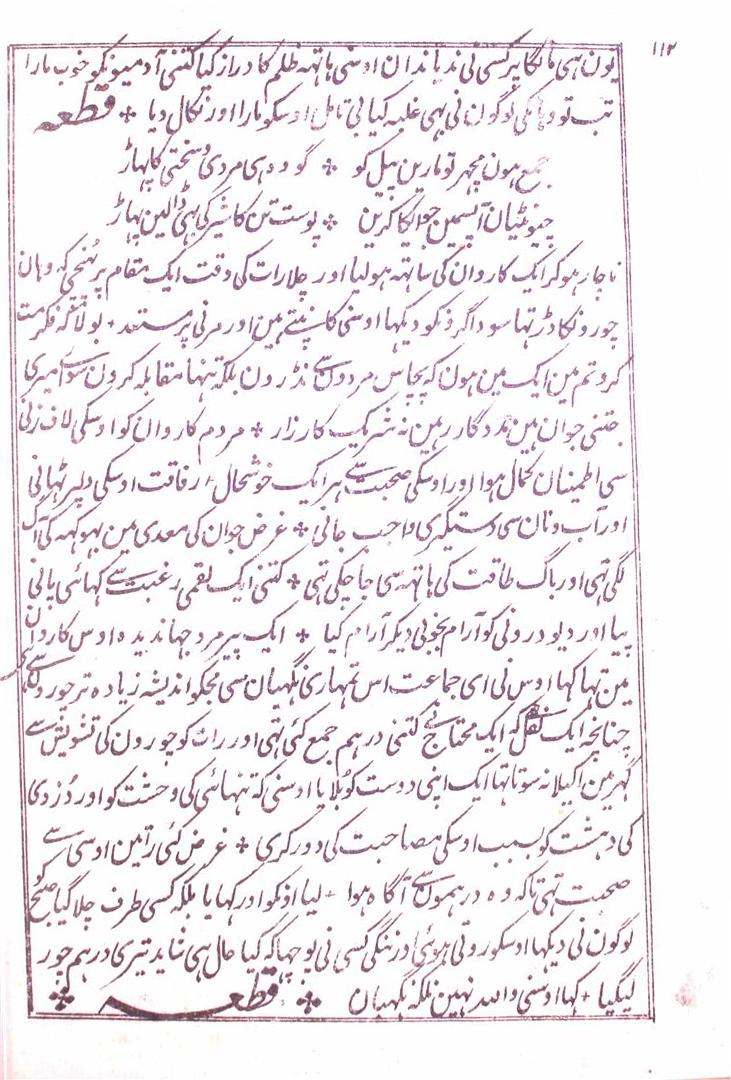 ۱۱۲
یون ہی مانگا پر کسی نی ندیا ندان اوسنی ہاتہہ ظلم کا دراز کیا کتنی آدمیونکو خوب مارا
تب تو وہانکی لوگون نی بہی غلبہ کیا بی تامل اوسکو مارا اور نکال دیا ٭ قطعہ
جمع ہون مچہر تو مارین پیل کو ٭ گو وہ ہی مردی و سختی کا پہاڑ
چیونٹیان آپسمین جو ایکا کرین ٭ پوست تن کا شیر کی بہی ڈالین پہاڑ
ناچار ہوکر ایک کاروان کی ساتہہ ہولیا اور چلا رات کی وقت ایک مقام پر پہنچی کہ وہان
چورونکا ڈر تہا سوداگرونکو دیکہا اوسنی کانپتے ہین اور مرنی پر مستعد + بولا کہ فکر مت
کرو تم مین ایک مین ہون کہ پچاس مردون سے نڈرون بلکہ تنہا مقابلہ کرون سواے میری
جتنی جوان ہین مددگار رہین نہ شریک کارزار ٭ مردم کاروان کو اوسکی لاف زنی
سی اطمینان کمال ہوا اور اوسکی صحبت سے ہر ایک خوشحال + رفاقت اوسکی دلپر ٹہانی
اور آب و نان سی دستگیری واجب جانی ٭ غرض جوان کی معدی مین بہوکہہ کی آگ
لگی تہی اور باگ طاقت کی ہاتہہ سی جا چکی تہی ٭ کتنی ایک لقمی رغبت سے کہائی پانی
پیا اور دیو درونی کو آرام بخوبی دیکر آرام کیا ٭ ایک پیر مرد جہاندیدہ اوس کاروان
مین تہا کہا اوس نی ای جماعت اس تمہاری نگہبان سی مجکو اندیشہ زیادہ تر چورونسے ہی
چنانچہ ایک نقل ہی کہ ایک محتاج نے کتنی درہم جمع کئی تہی اور رات کو چورون کی تشویش سے
گہر مین اکیلا نہ سوتا تہا ایک اپنی دوست کو بلایا اوسنی کہ تنہائی کی وحشت کو اور دزدی
کی دہشت کو بسبب اوسکی مصاحبت کی دور کری ٭ غرض کئی راتین اوسی سے
صحبت تہی تاکہ وہ درہمون سے آگاہ ہوا + لیا اونکو اور کہایا بلکہ کسی طرف چلا گیا صبح کو
لوگون نی دیکہا اوسکو روتی ہوئی اور ننگی کسی نی پوچہا کہ کیا حال ہی شاید تیری درہم چور
لیگیا + کہا اوسنی واللہ نہین بلکہ نگہبان ٭ قطعہ ٭